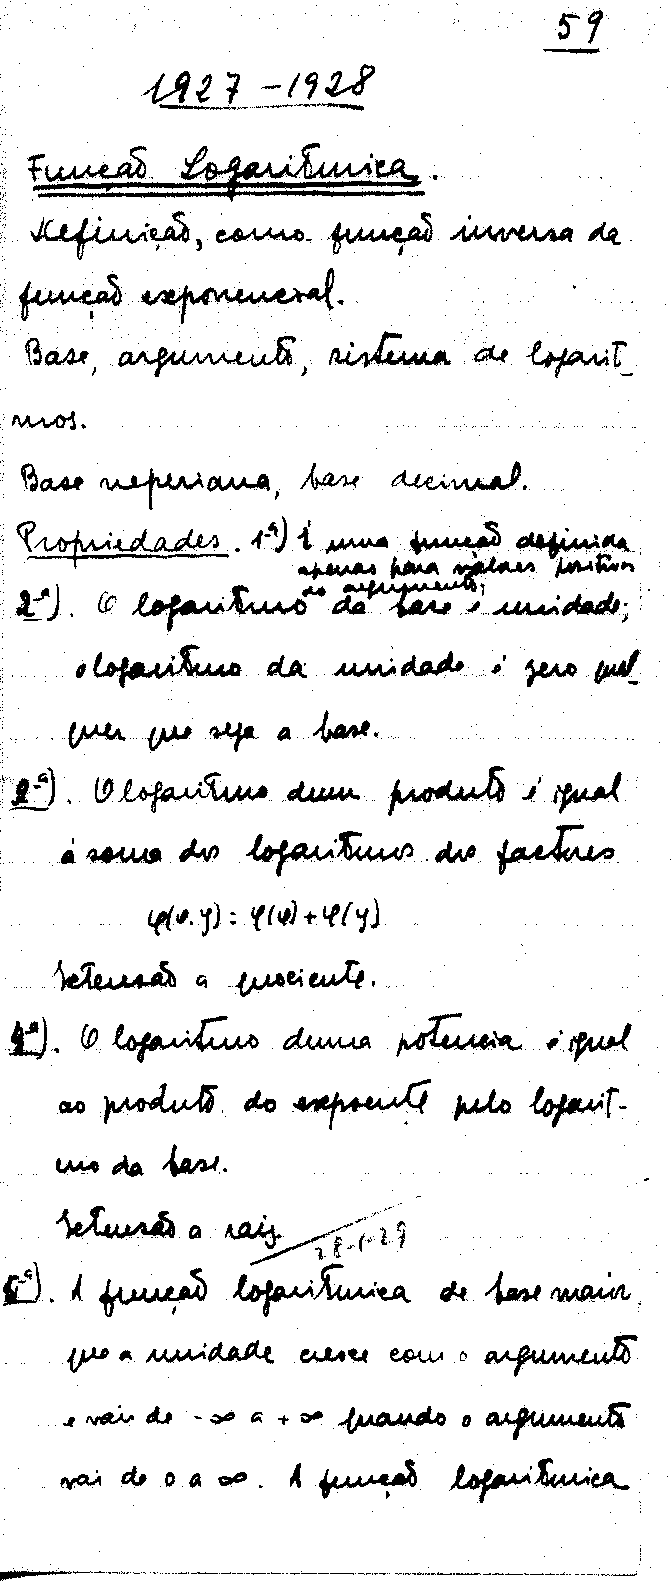 59
1927-1928
Função Logaritmica.
Definição, como função inversa da
função exponencial.
Base, argumento, sistema de logarit-
mos.
Base neperiana, base decimal.
Propriedades. 1ª) É uma função definida
apenas para valores positivos
do argumento;
2ª). O logaritmo da base é unidade;
o logaritmo da unidade é zero qual-
quer que seja a base.
ª). O logaritmo dum produto é igual
á soma dos logaritmos dos factores
φ(v.y) = φ(v)+φ(y)
Extensão a quociente.
4ª). O logaritmo duma potencia é igual
ao produto do expoente pelo logarit-
mo da base.
Extensão a raiz.
28-1-29
5ª). A função logaritmica de base maior
que a unidade cresce com o argumento
e vai de -∞ a +∞ quando o argumento
vai de 0 a ∞. A função logaritmica